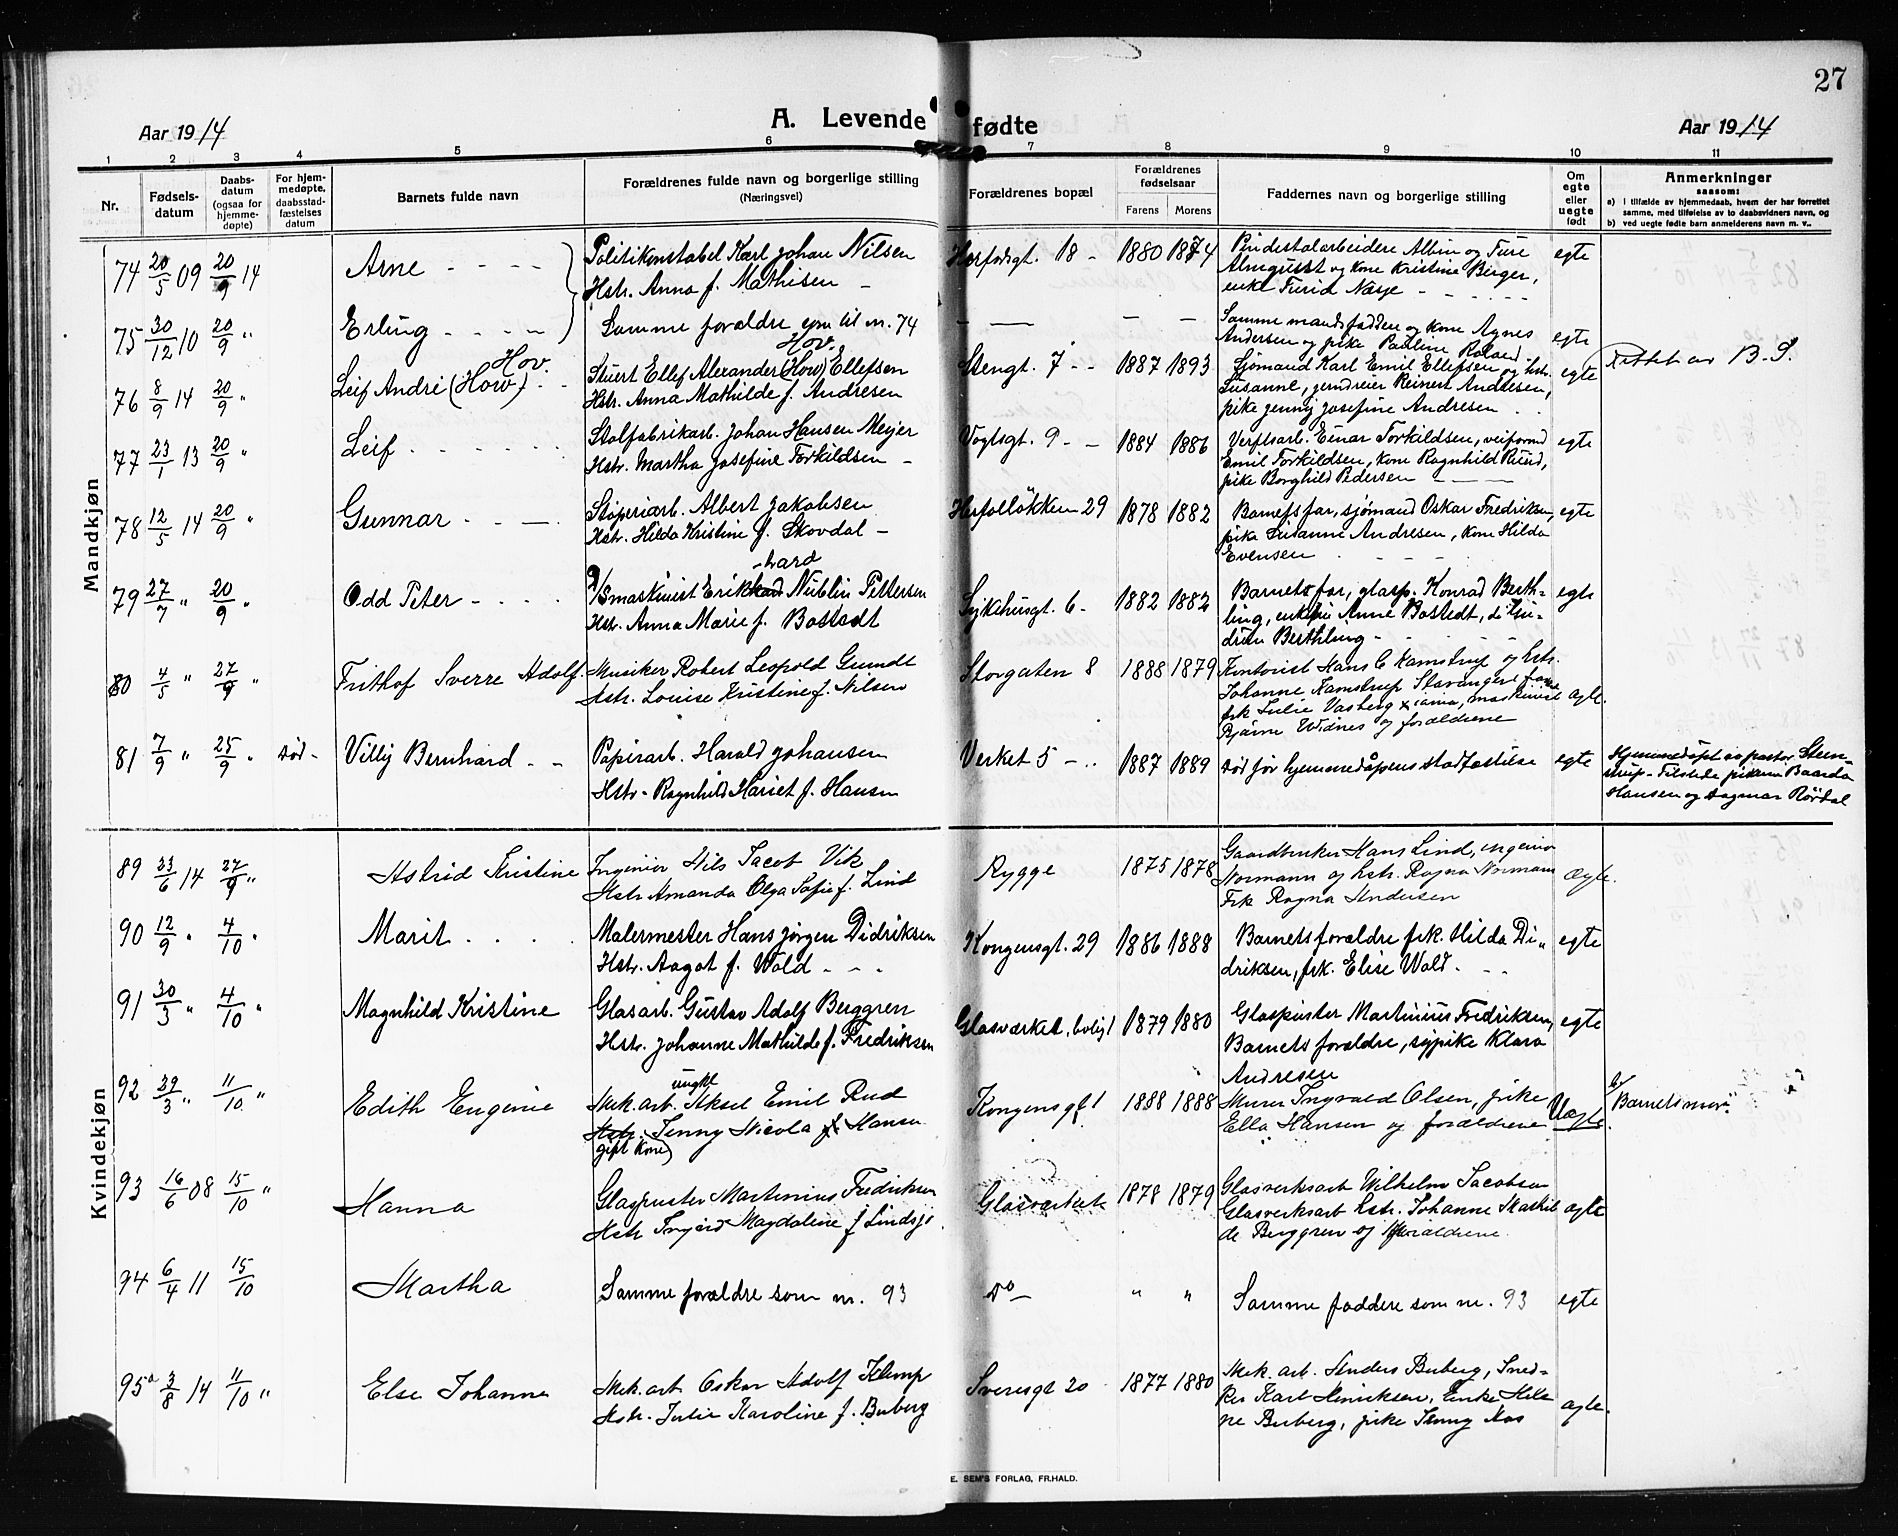 27
Aar 1914
A. Levende fødte
Aar 1914
1 2 3 4 5 6 7 8 9 10 11
Nr.
Fødsels-
datum
Daabs-
datum
(ogsaa for
hjemme-
døpte)
For hjem-
medøpte,
daabsstad-
fæstelses
datum
Barnets fulde navn
Forældrenes fulde navn og borgerlige stilling
(Næringsvei)
Forældrenes bopæl
Forældrenes
fødselsaar
Farens Morens
Faddernes navn og borgerlige stilling
Om
egte
eller
uegte
født
Anmerkninger
saasom:
a) I tilfælde av hjemmedaab, hvem der har forrettet
samme, med tilføielse av to daabsvidners navn, og
b) ved uegte fødte barn anmelderens navn m. v..
Mandkjøn
74 20/5 09 20/9 14 Arne Politikonstabel Karl Johan Nilsen 18 1880 1874 og egte
Hstr. Anna f. Mathisen og kone Kristine Berger,
enke Turid
75 30/12 10 20/9 " Erling Samme forældre som til nr. 74 Samme mandsfaddere og kone Agnes egte
Andersen og pike Pauline
Hov. Hov.
76 8/9 14 20/9 " Leif Andre (How) Stuert Ellef Alexander (How) Ellefsen Stengt. 7 1887 1893 Sjømand Karl Emil Ellefsen og hstr. egte Rettet av B. S.
Hstr. Anna Mathilde f. Andresen Susanne, Reinert Andresen,
pike Jenny Josefine Andresen
77 23/1 13 20/9 " Leif Johan Hansen Meyer Vogtsgt. 9 1884 1886 Verftsarb. Einar Torkildsen, egte
Hstr. Martha Josefine Torkildsen Emil Torkildsen, kone Ragnhild Ruud,
pike Borghild Pedersen
78 12/5 14 20/9 " Gunnar Støperiarb. Albert Jakobsen 29 1878 1882 Barnets far, sjømand Oskar Fredriksen, egte
Hstr. Hilda Kristine f. Skovdal pike Susanne Andresen, kone Hilda
Evensen
-hard
79 27/7 " 20/9 " Odd Peter Pettersen Sykehusgt. 6 1882 1882 Barnets far, glasp. Konrad Berth- egte
Hstr. Anna Marie f. Bostedt ling, Anne Bostedt,
Berthling
80 4/5 " 27/9 " Frithof Sverre Adolf Musiker Robert Leopold Gundt Storgaten 8 1888 1879 Kontorist Hans C. Kamstrup og hstr.
Hstr. Louise Kristine f. Nilsen Johanne Kamstrup Stavanger, ægte.
frk Julie maskinist
Bjarne Widnes og forældrene
81 7/9 " 25/9 " død Villy Bernhard Papirarb. Harald Johansen Verket 5 1887 1889 død før hjemmedåpens stadfæstelse egte Hjemmedøpt av pastor Steen-
Hstr. Ragnhild Hariet f. Hansen strup. Tilstede
Hansen og Dagmar Rørdal
Kvindekjøn
89 23/6 14 27/9 " Astrid Kristine Ingeniør Nils Jacob Vik Rygge 1875 1878 Gaardbruker Hans Lind, ingeniør
Hstr Amanda Olga Sofie f. Lind Normann og hstr. Ragna Normann Ægte.
Frk Ragna Andersen
90 12/9 " 4/10 " Marit Malermester Hans Jørgen Didriksen Kongensgt. 29 1886 1888 Barnets forældre frk. Hilda Di- egte
Hstr. Aagot f. Wold driksen, frk. Elise Wold.
91 30/3 " 4/10 " Magnhild Kristine Glasarb. Gustav Adolf Berggren Glasværket, bolig 1 1879 1880 Glaspuster Martinius Fredriksen, egte
Hstr. Johanne Mathilde f. Fredriksen Barnets forældre, sypike Klara
Andresen
ungkl
92 29/3 " 11/10 " Edith Eugenie Mek. arb. Aksel Emil Rud Kongensgt 1 1888 1888 Murer Ingvald Olsen, pike Uægte b/ "Barnets mor".
Hstr. Jenny Nicola f. Hansen Ella Hansen og forældrene
gift kone)
93 16/6 08 15/10 " Hanna Glaspuster Martinius Fredriksen Glasværket 1878 1879 Glasverksarb Wilhelm Jacobsen
Hstr Ingrid Magdalene f Lindsjø. Glasverksarb hstr. Johanne Mathil ægte
de Berggren og forældrene.
94 6/4 11 15/10 Martha Samme forældre som nr. 93 do " " Samme faddere som nr. 93 egte
95 3/8 14 11/10 " Else Johanne Mek. arb Oskar Adolf Klemp Sveresgt 20 1877 1880 Mek. arb. Anders Buberg, Sned-
Hstr. Julie Karoline f. Buberg ker Karl Henriksen, Enke Hele ægte.
ne Buberg, pike Jenny Aas
E. SEM'S FORLAG, FR.HALD.